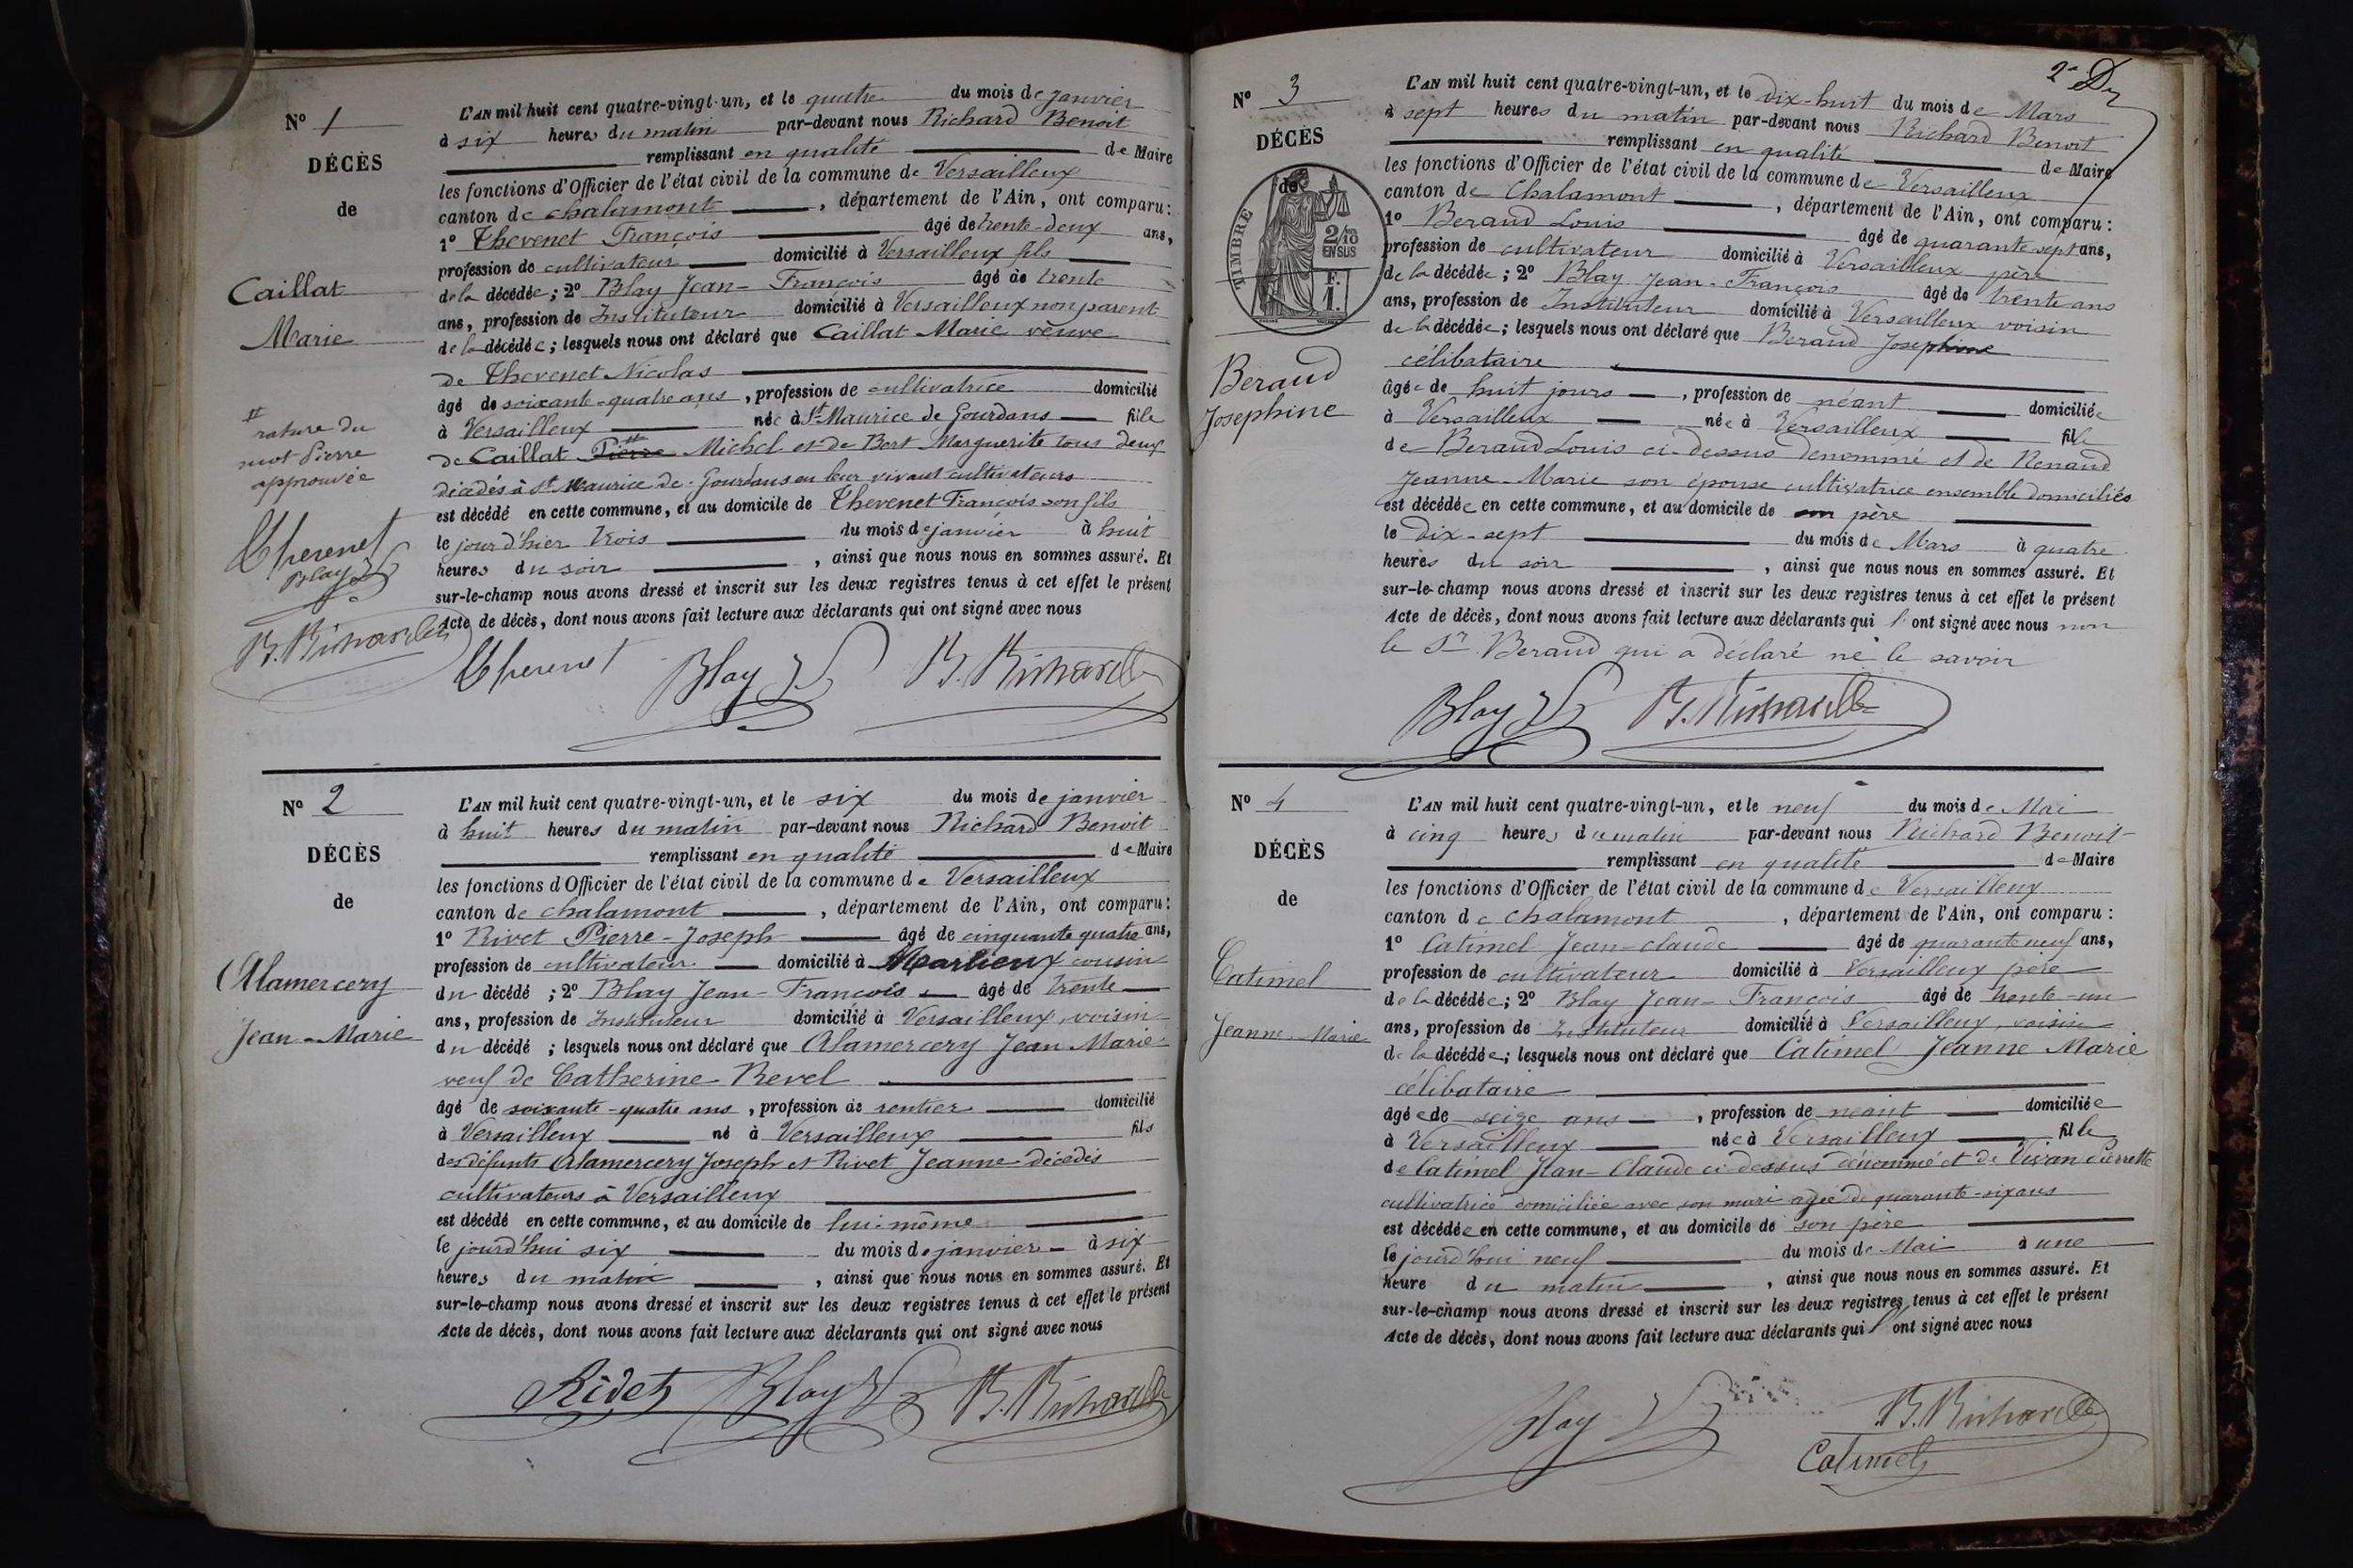 N° 1
DÉCÈS
de
Caillat
Marie
rature du
mot Pierre
approuvée
Thevenet
Blay
B. Richard
L'AN mil huit cent quatre-vingt-un, et le quatre du mois de janvier
à six heures du matin par-devant nous Richard Benoit
remplissant en qualité de Maire
les fonctions d'Officier de l'état civil de la commune de Versailleux
canton de chalamont, département de l'Ain, ont comparu:
1° Thevenet François âgé de trente-deux ans,
profession de cultivateur domicilié à Versailleux fils
de la décédée; 2° Blay Jean-François âgé de trente
ans, profession de Instituteur domicilié à Versailleux non parent
de la décédée; lesquels nous ont déclaré que Caillat Marie veuve
de Thevenet Nicolas
âgé de soixante-quatre ans, profession de cultivatrice domicilié
à Versailleux née à St Maurice de Gourdans fille
de Caillat Pierre Michel et de Bert Marguerite tous deux
décédés à St Maurice de Gourdans en leur vivant cultivateurs
est décédé en cette commune, et au domicile de Thevenet François son fils
le jourd'hier trois du mois de janvier à huit
heures du soir, ainsi que nous nous en sommes assuré. Et
sur-le-champ nous avons dressé et inscrit sur les deux registres tenus à cet effet le présent
Acte de décès, dont nous avons fait lecture aux déclarants qui ont signé avec nous
Thevenet Blay B. Richard
N° 2
DÉCÈS
de
Alamercery
Jean-Marie
L'AN mil huit cent quatre-vingt-un, et le six du mois de janvier
à huit heures du matin par-devant nous Richard Benoit
remplissant en qualité de Maire
les fonctions d'Officier de l'état civil de la commune de Versailleux
canton de chalamont, département de l'Ain, ont comparu:
1° Rivet Pierre-Joseph âgé de cinquante quatre ans,
profession de cultivateur domicilié à Marlieux cousin
du décédé; 2° Blay Jean-François âgé de trente
ans, profession de Instituteur domicilié à Versailleux, voisin
du décédé; lesquels nous ont déclaré que Alamercery Jean Marie
veuf de Catherine Revel
âgé de soixante-quatre ans, profession de rentier domicilié
à Versailleux né à Versailleux fils
des défunts Alamercery Joseph et Rivet Jeanne décédés
cultivateurs à Versailleux
est décédé en cette commune, et au domicile de lui-même
le jourd'hui six du mois de janvier à six
heures du matin, ainsi que nous nous en sommes assuré. Et
sur-le-champ nous avons dressé et inscrit sur les deux registres tenus à cet effet le présent
Acte de décès, dont nous avons fait lecture aux déclarants qui ont signé avec nous
Rivet Blay B. Richard
N° 3
DÉCÈS
de
TIMBRE
2/10
EN SUS
F.
1.
Beraud
Josephine
L'AN mil huit cent quatre-vingt-un, et le dix-huit du mois de Mars
à sept heures du matin par-devant nous Richard Benoit
remplissant en qualité de Maire
les fonctions d'Officier de l'état civil de la commune de Versailleux
canton de Chalamont, département de l'Ain, ont comparu:
1° Beraud Louis âgé de quarante-sept ans,
profession de cultivateur domicilié à Versailleux père
de la décédée; 2° Blay Jean-François âgé de trente ans
ans, profession de Instituteur domicilié à Versailleux voisin
de la décédée; lesquels nous ont déclaré que Beraud Josephine
célibataire
âgée de huit jours, profession de néant domiciliée
à Versailleux née à Versailleux fille
de Beraud Louis ci-dessus dénommé et de Renaud
Jeanne-Marie son épouse cultivatrice ensemble domiciliés
est décédée en cette commune, et au domicile de son père
le dix-sept du mois de Mars à quatre
heures du soir, ainsi que nous nous en sommes assuré. Et
sur-le-champ nous avons dressé et inscrit sur les deux registres tenus à cet effet le présent
Acte de décès, dont nous avons fait lecture aux déclarants qui l'ont signé avec nous non
le Sr Beraud qui a déclaré ne le savoir
Blay B. Richard
N° 4
DÉCÈS
de
Catimel
Jeanne-Marie
L'AN mil huit cent quatre-vingt-un, et le neuf du mois de Mai
à cinq heures du matin par-devant nous Richard Benoit
remplissant en qualité de Maire
les fonctions d'Officier de l'état civil de la commune de Versailleux
canton de chalamont, département de l'Ain, ont comparu:
1° Catimel Jean-claude âgé de quarante neuf ans,
profession de cultivateur domicilié à Versailleux père
de la décédée; 2° Blay Jean-François âgé de trente-un
ans, profession de Instituteur domicilié à Versailleux, voisin
de la décédée; lesquels nous ont déclaré que Catimel Jeanne Marie
célibataire
âgée de seize ans, profession de néant domiciliée
à Versailleux née à Versailleux fille
de Catimel Jean-Claude ci-dessus dénommé et de Vivan Pierrette
cultivatrice domiciliée avec son mari agée de quarante-six ans
est décédée en cette commune, et au domicile de son père
le jourd'hui neuf du mois de Mai à une
heure du matin, ainsi que nous nous en sommes assuré. Et
sur-le-champ nous avons dressé et inscrit sur les deux registres tenus à cet effet le présent
Acte de décès, dont nous avons fait lecture aux déclarants qui l'ont signé avec nous
Blay B. Richard
Catimel